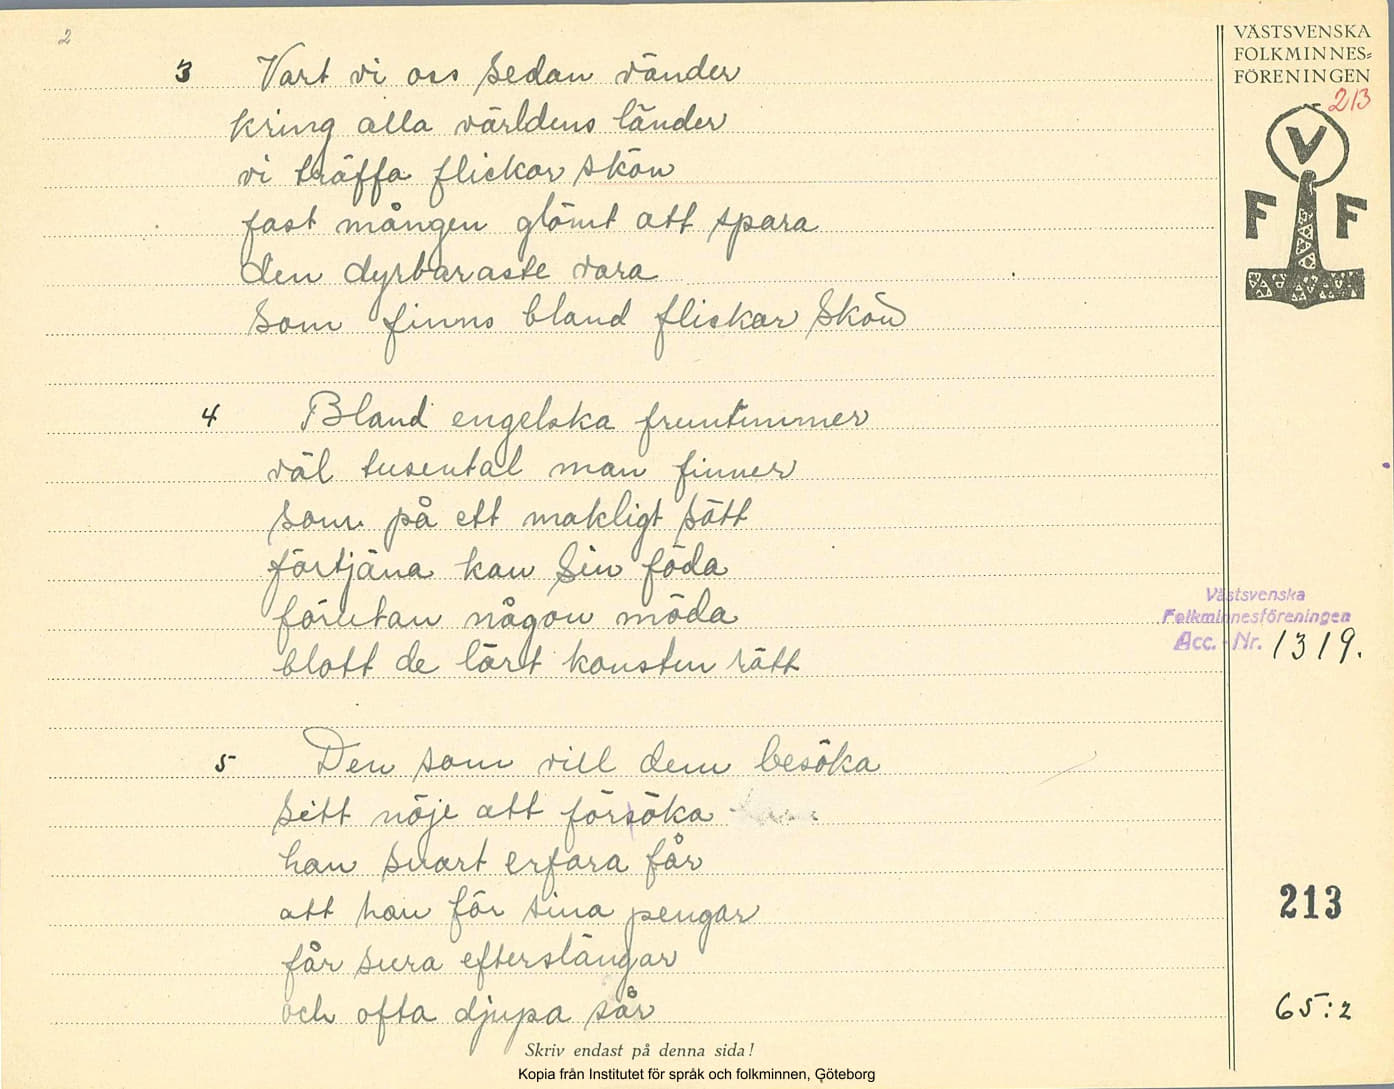 2
VÄSTSVENSKA
FOLKMINNES-
FÖRENINGEN
213
V
F F
3 Vart vi oss sedan vänder
kring alla världens länder
vi träffa flickor skön
fast mången glömt att spara
den dyrbaraste vara
Som finns bland flickor Skön
4 Bland engelska fruntimmer
väl tusental man finner
som på ett makligt sätt
förtjäna kan Sin föda
förutan någon möda
blott de lärt konsten rätt
Västsvenska
Folkminnesföreningen
Acc. - Nr. 1319.
5 Den som vill dem besöka
Sitt nöje att försöka
han snart erfara får
att han för sina pengar
får sura efterslängar
och ofta djupa sår
213
65:2
Skriv endast på denna sida!
Kopia från Institutet för språk och folkminnen, Göteborg